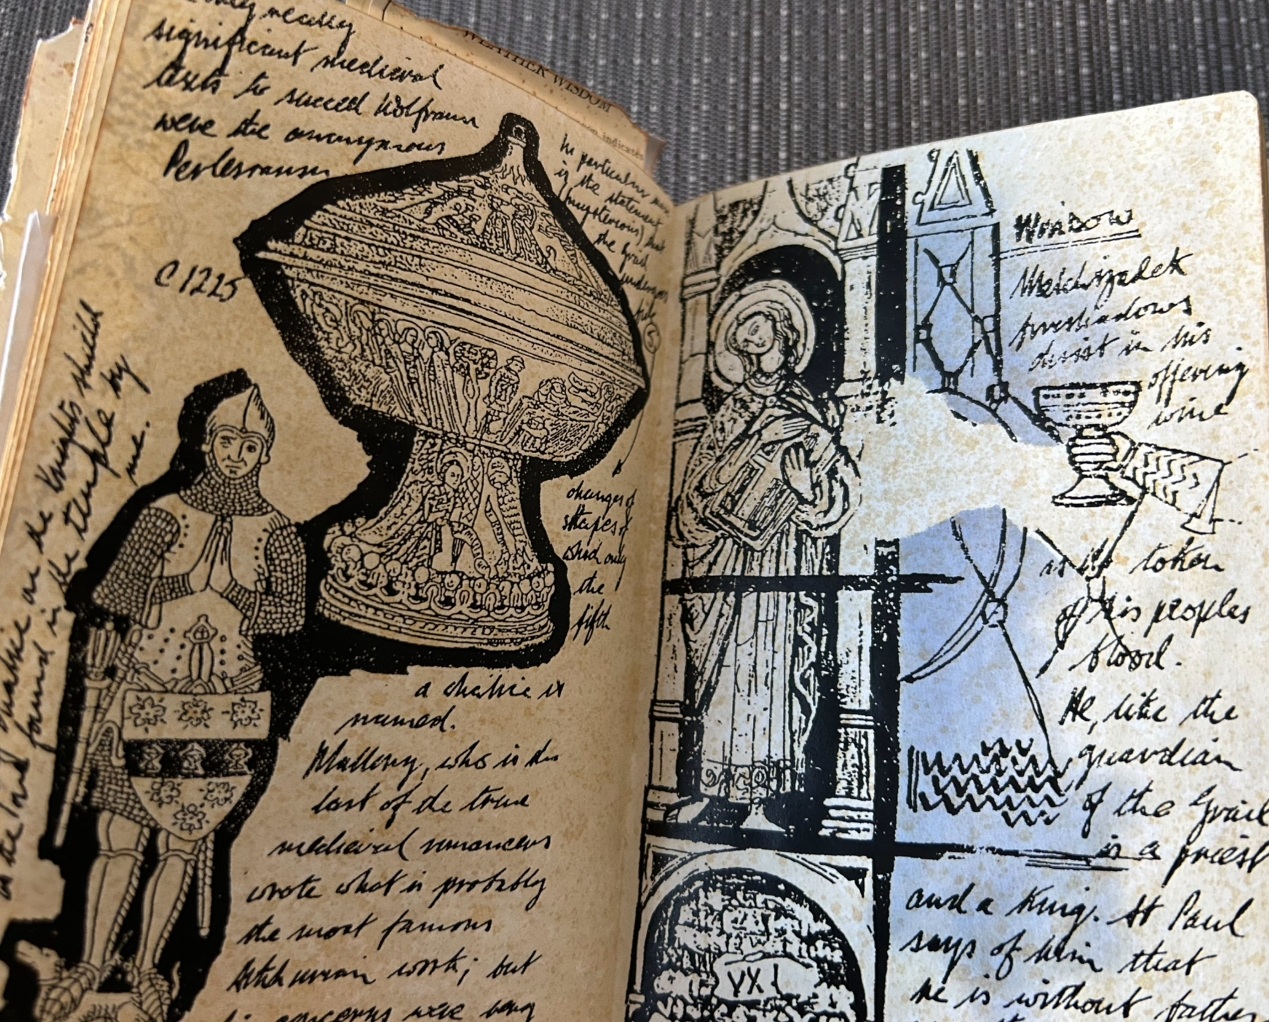 significant medieval
texts to succeed Wolfram
were the anonymous
Perlesvaus
C 1225
WEATHER WISDOM
he particulars
is the statement
mysterious, that
the Grail
undergoes
changes of
shapes of
which only
the
fifth
a chalice is
named.
Mallory, who is the
last of the true
medieval romancers
wrote what is probably
the most famous
Arthurian work; but
his concerns were
found in the temple by
me.
Window
Melchizadek
foreshadows
christ in his
offering
wine
as the token
of his peoples
blood.
He, like the
guardian
of the Grail
is a priest
and a King. St Paul
says of him that
he is without father
VXI